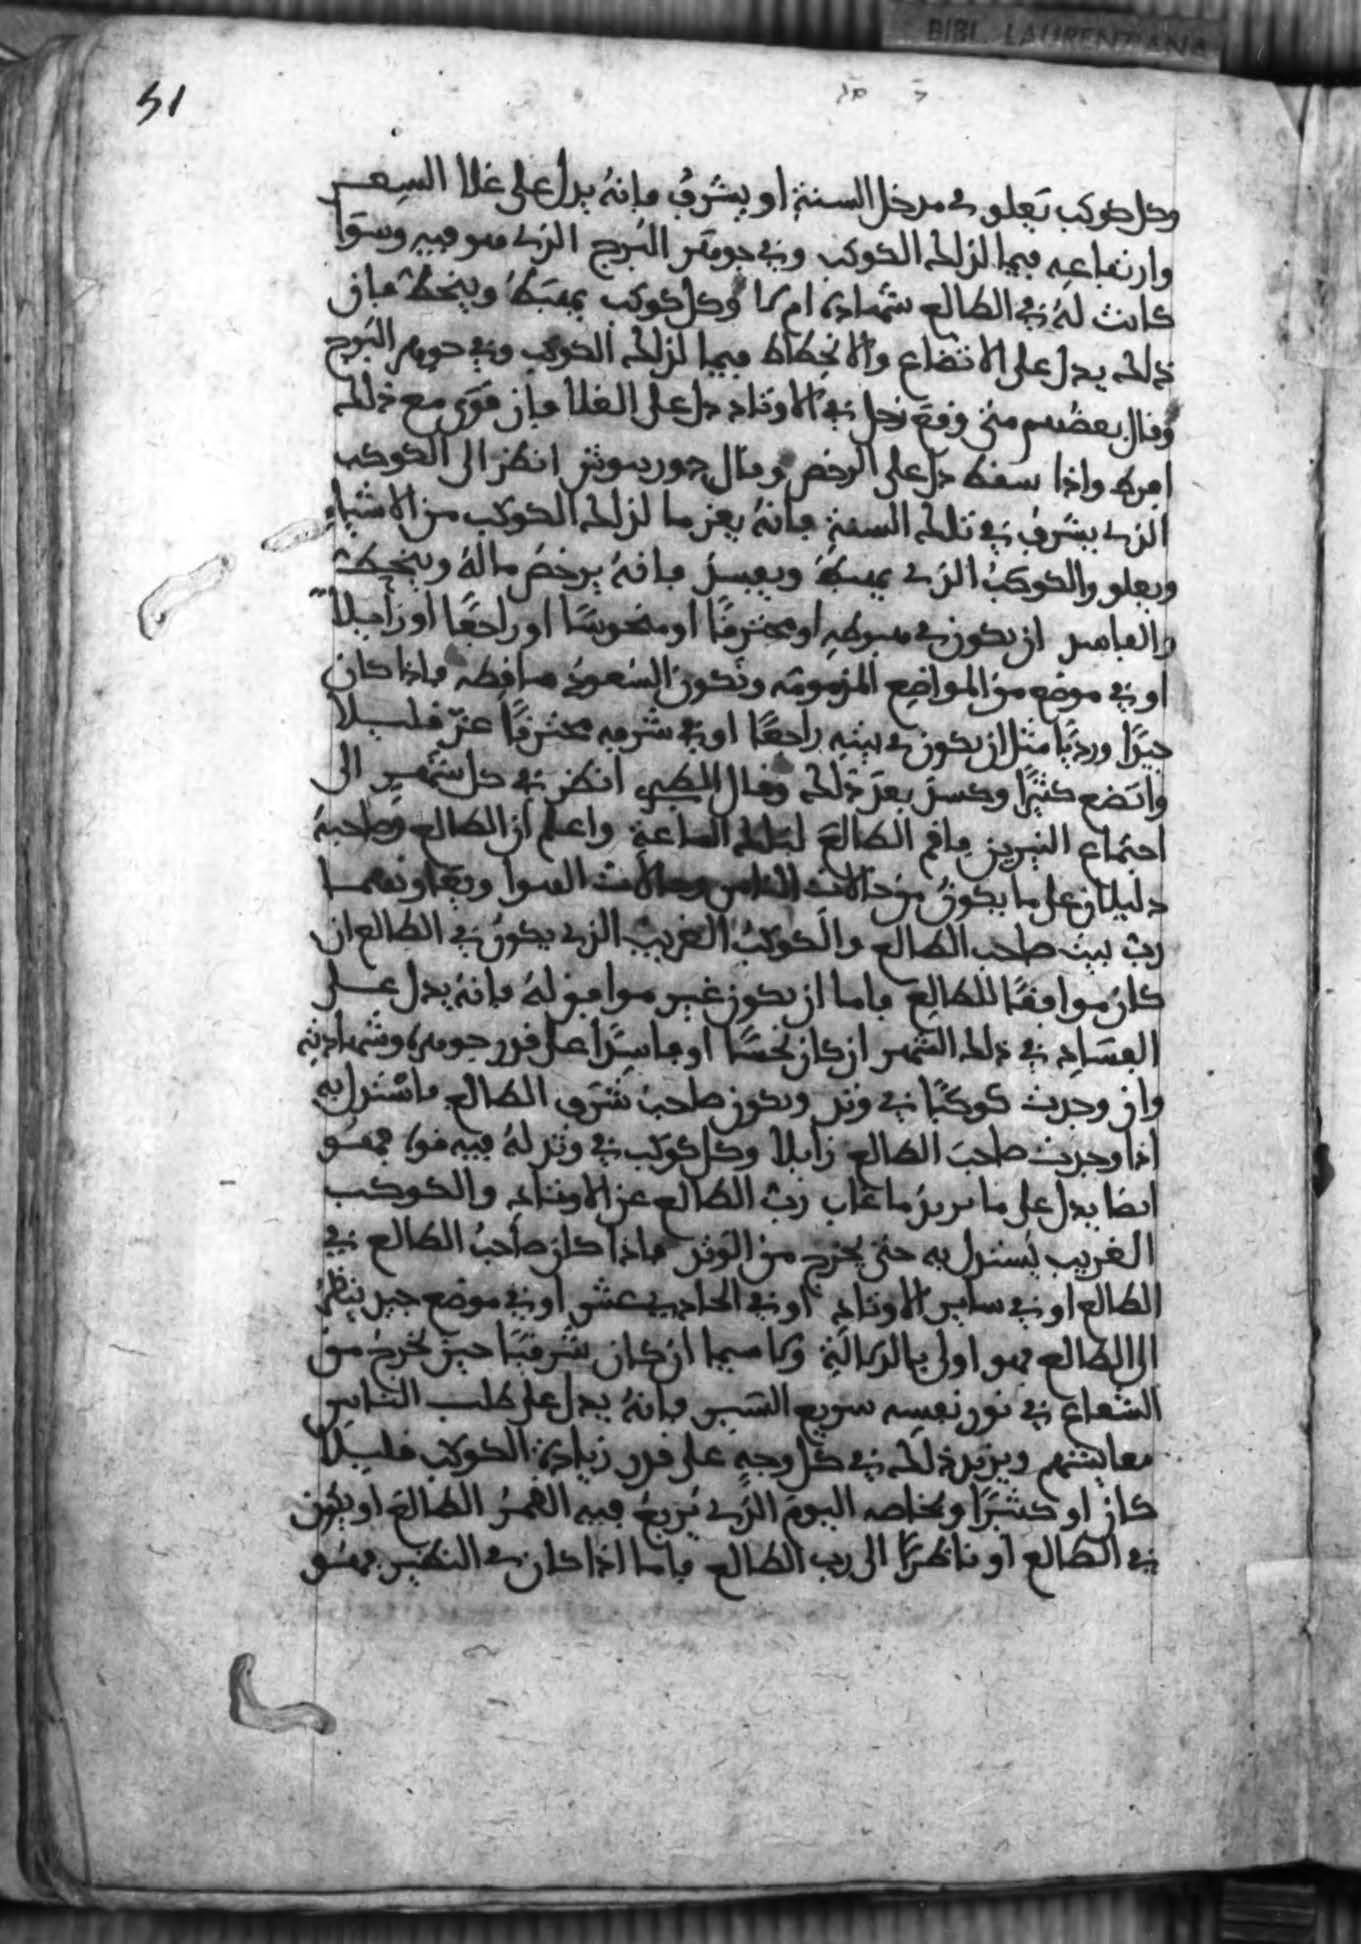 BIBL. LAURENTIANA
51
وكل كوكب يعلو في مدخل السنة او يشرف فانه يدل على غلا السعر
وارتفاعه فيما لذلك الكوكب وفي جوهر البرج الذي هو فيه وسوا
كانت له في الطالع شهادة ام لا وكل كوكب يهبط وينحط فان
ذلك يدل على الاتضاع والانحطاط فيما لذلك الكوكب وفي جوهر البرج
وقال بعضهم متى وقع زحل في الاوتاد دل على الغلا فان قوى مع ذلك
افرط واذا سقط دل على الرخص وقال انظر الى الكوكب
الذي يشرف في تلك السنة فانه يعز ما لذلك الكوكب من الاشياء
ويعلو والكوكب الذي يهبط ويفسد فانه يرخص ماله وينحط
والفاسد ان يكون في هبوطه او محترقا او منحوسا او راجعا او زايلا
او في موضع من المواضع المذمومة وتكون السعود ساقطه فاذا كان
جيدا ورديا مثل ان يكون في بيته راجعا او في شرفه محترقا عز قليلا
واتضع كثيرا وكسد بعد ذلك وقال انظر في كل شهر الى
اجتماع النيرين فاقم الطالع لتلك الساعة واعلم ان الطالع وصاحبه
دليلان على ما يكون من حالات الناس وحالات الهوا
رب بيت صاحب الطالع والكوكب الغريب الذي يكون في الطالع ان
كان موافقا للطالع فاما ان يكون غير موافق له فانه يدل على
الفساد في ذلك الشهر ان كان نحسا او فاسدا على قدر جوهره وشهادته
وان وجدت كوكبا في وتد ويكون صاحب شرف الطالع فاستدل به
اذا وجدت صاحب الطالع زايلا وكل كوكب في وتد له فيه قوة فهو
ايضا يدل على ما تريد ما غاب رب الطالع عن الاوتاد والكوكب
الغريب يستدل به حتى يخرج من الوتد فاذا كان صاحب الطالع في
الطالع او في ساير الاوتاد او في الحادي عشر او في موضع جيد ينظر
الى الطالع فهو اولى بالدلالة ولا سيما ان كان شرقيا حين يخرج من
الشعاع في نور نفسه سريع السير فانه يدل على طلب الناس
معايشهم ويزيد ذلك في كل وجه على قدر زيادة الكوكب قليلا
كان او كثيرا وبخاصه اليوم الذي يربع فيه القمر الطالع او يكون
في الطالع او ناظرا الى رب الطالع فاما اذا كان في النظير فهو